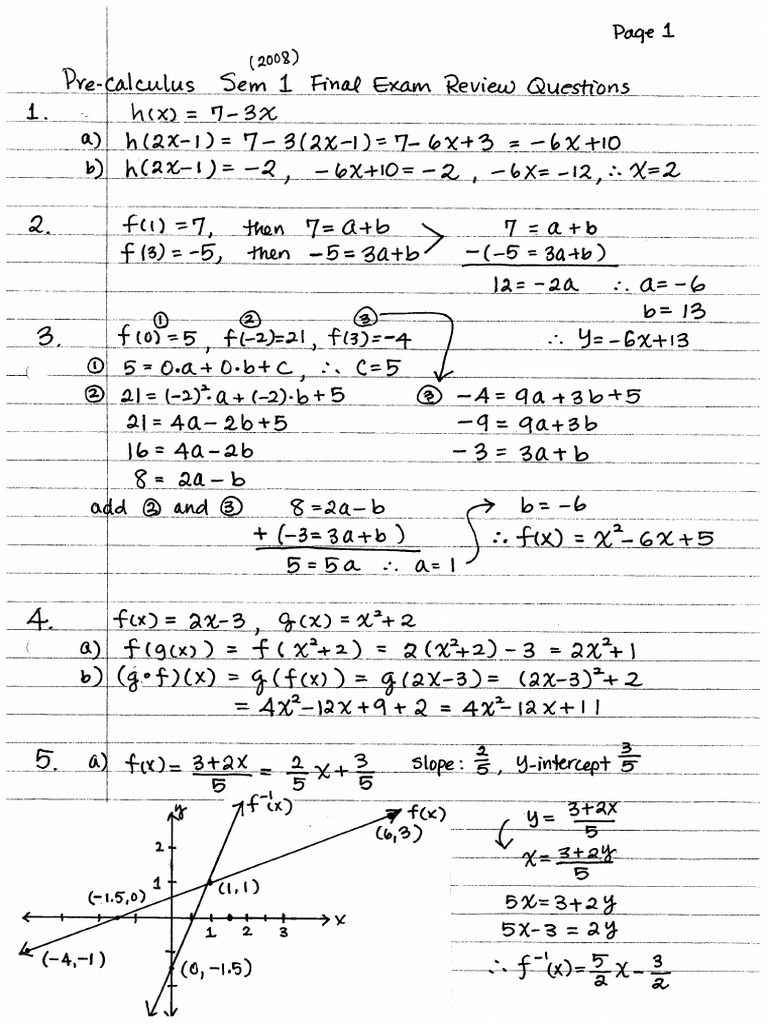 Page 1
(2008)
Pre-calculus Sem 1 Final Exam Review Questions
1. h(x) = 7-3x
a) h(2x-1) = 7-3(2x-1) = 7-6x+3 = -6x+10
b) h(2x-1) = -2, -6x+10 = -2, -6x = -12, ∴ x=2
2. f(1) = 7, then 7 = a+b 7 = a+b
f(3) = -5, then -5 = 3a+b -(-5 = 3a+b)
12 = -2a ∴ a = -6
b = 13
① ② ③
3. f(0) = 5, f(-2) = 21, f(3) = -4 ∴ y = -6x+13
① 5 = 0·a + 0·b + c, ∴ c = 5
② 21 = (-2)²·a + (-2)·b + 5 ③ -4 = 9a + 3b + 5
21 = 4a - 2b + 5 -9 = 9a + 3b
16 = 4a - 2b -3 = 3a + b
8 = 2a - b
add ② and ③ 8 = 2a - b → b = -6
+ (-3 = 3a + b) ∴ f(x) = x² - 6x + 5
5 = 5a ∴ a = 1
4. f(x) = 2x-3, g(x) = x²+2
a) f(g(x)) = f(x²+2) = 2(x²+2) - 3 = 2x²+1
b) (g∘f)(x) = g(f(x)) = g(2x-3) = (2x-3)²+2
= 4x²-12x+9+2 = 4x²-12x+11
5. a) f(x) = 3+2x/5 = 2/5 x + 3/5 slope: 2/5, y-intercept 3/5
y f⁻¹(x) f(x)
(6,3)
2
1
(1,1)
(-1.5,0)
1 2 3 x
(-4,-1)
(0,-1.5)
y = 3+2x/5
x = 3+2y/5
5x = 3+2y
5x-3 = 2y
∴ f⁻¹(x) = 5/2 x - 3/2